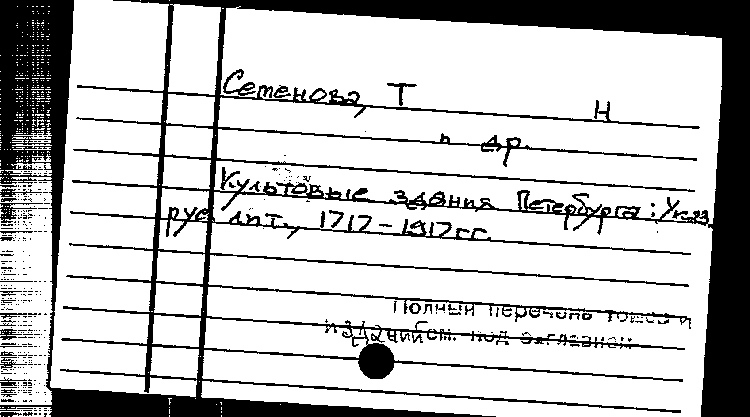 Семенова, Т Н
и др.
Культовые здания Петербурга: Указ.
рус лит., 1717-1917 гг.
Полный перечень томов и
изданий см. под заглавием